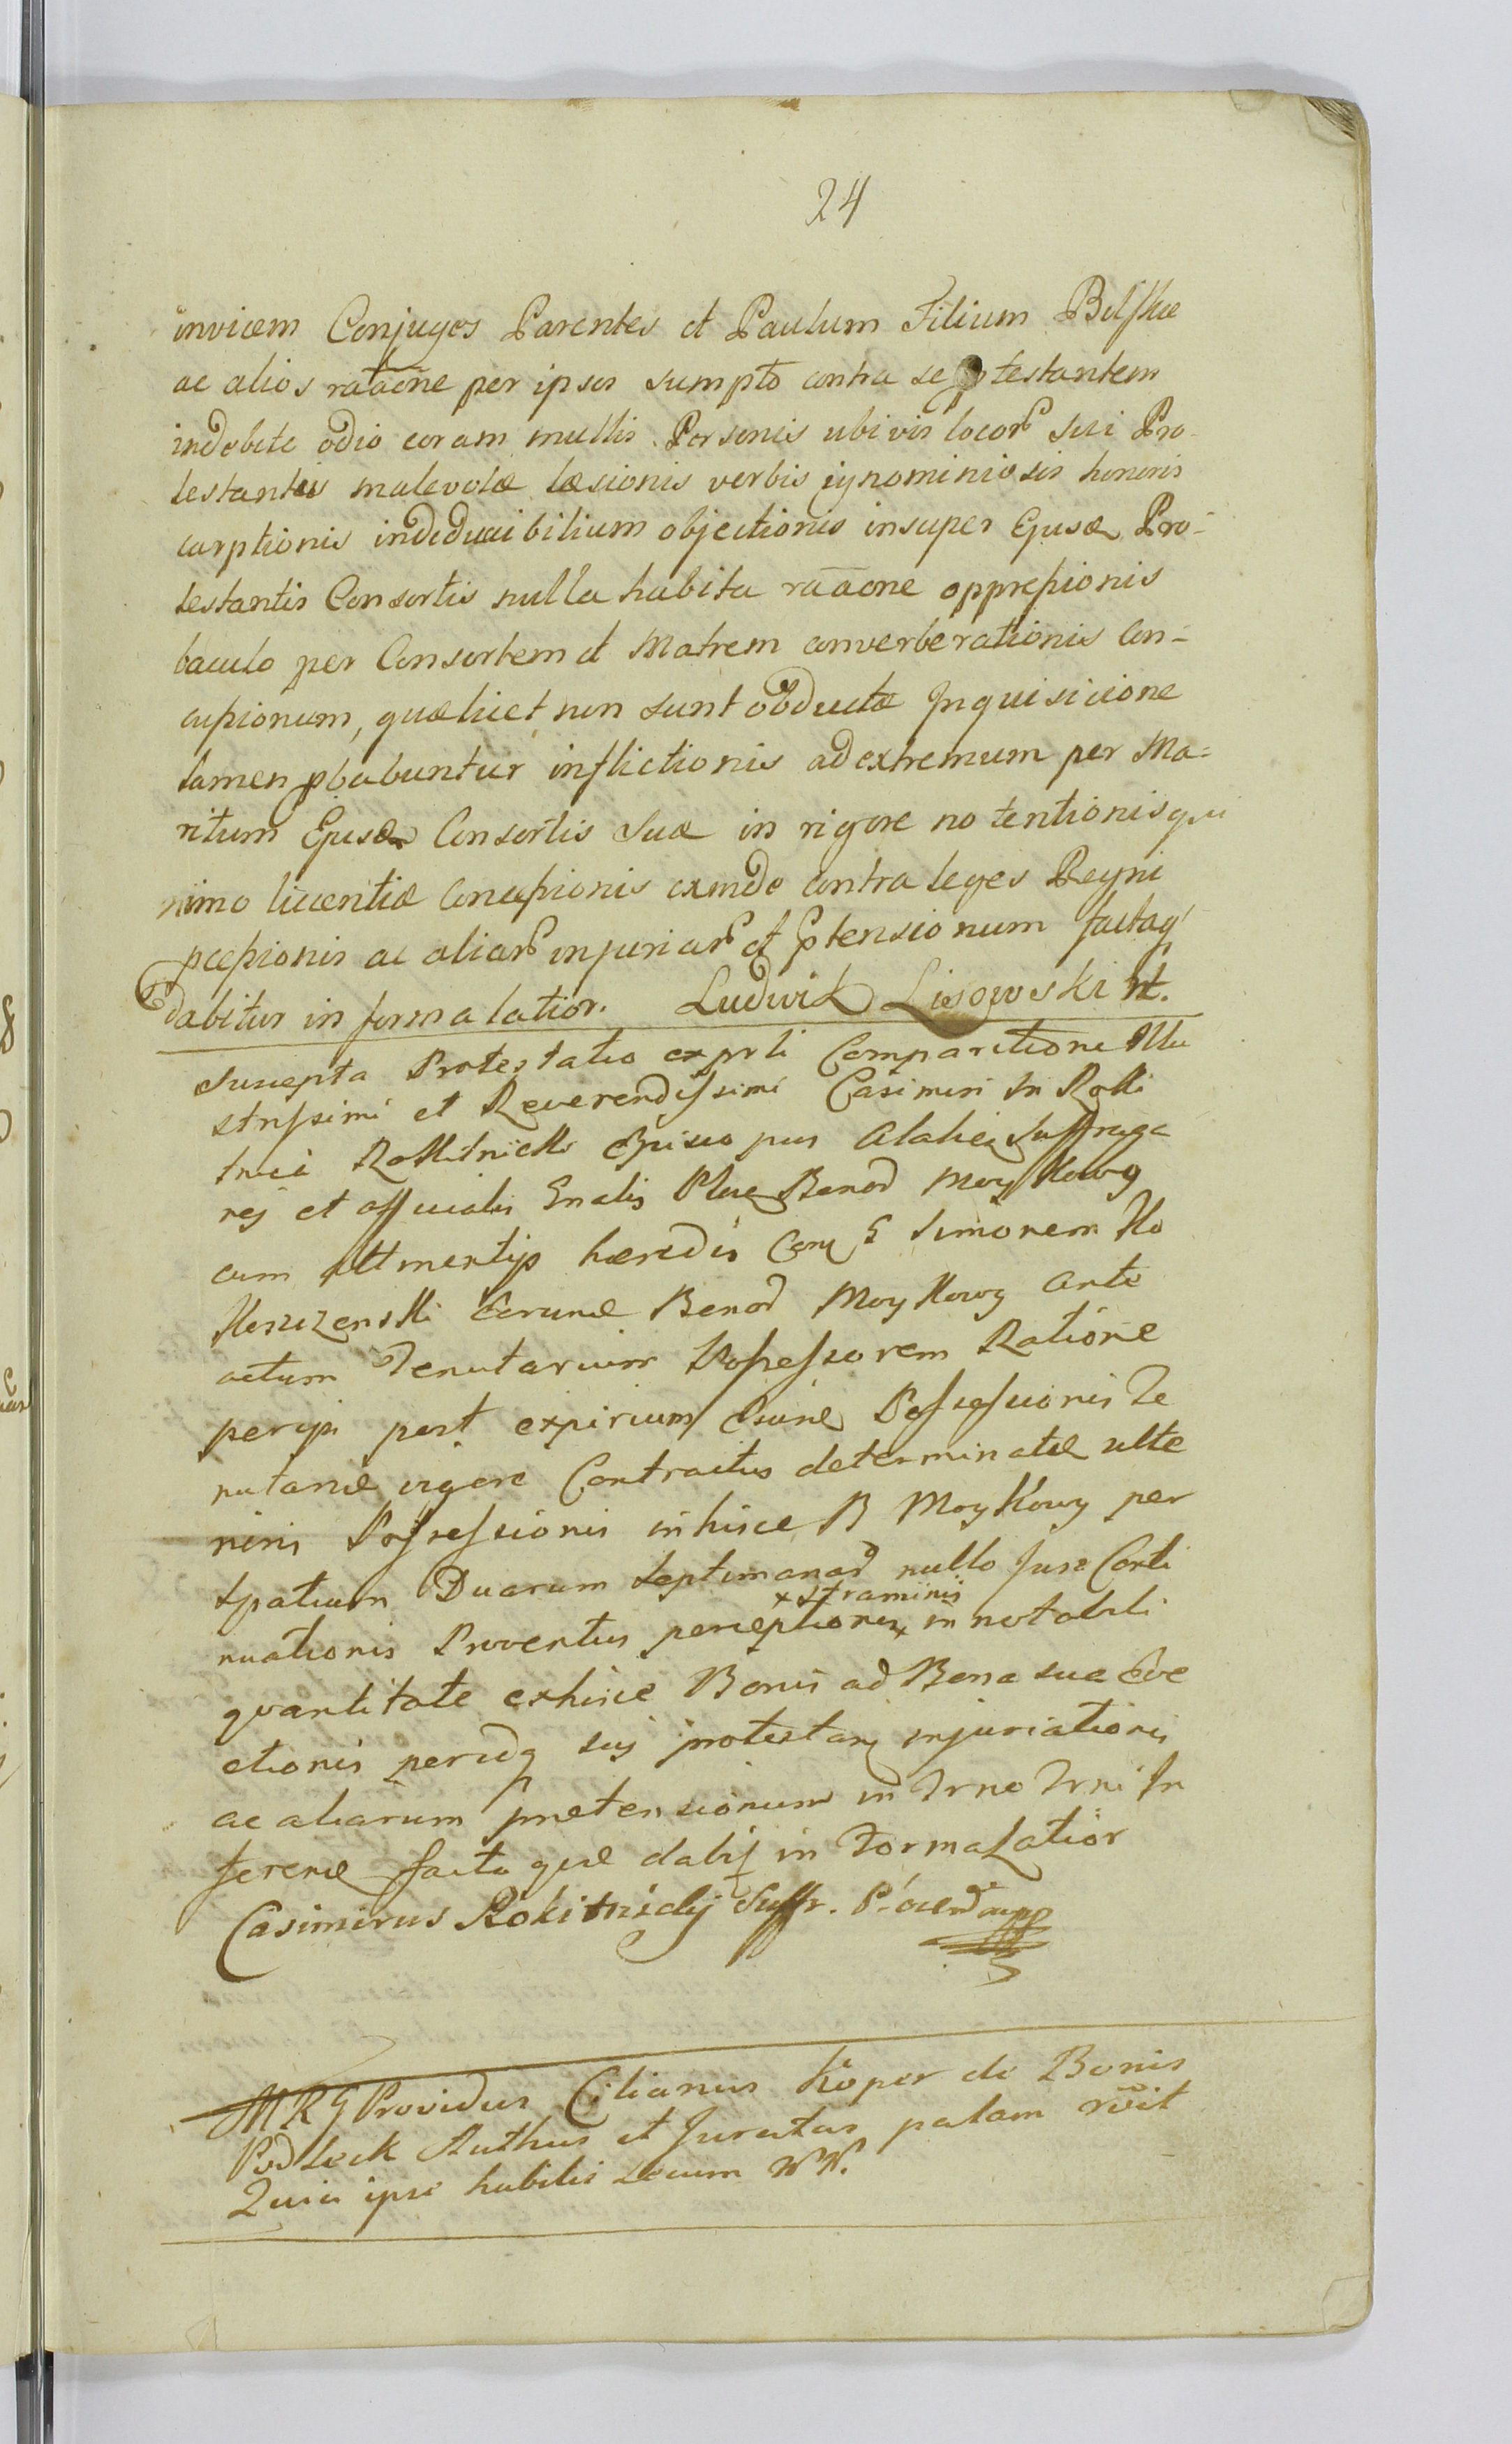 24
invicem Conjuges Parentes et Paulum Filium Bilskie
ac alios raãone per ipsos sumpto contra se ptestantem
indebite odio coram multis Personis ubivis locor sui Pro-
testantis malevolæ læsionis verbis ignominiosis honoris
carptionis indeducibilium objectionis insuper Ejusd Pro-
testantis Consortis nulla habita raãone oppressionis
baculo per Consortem et Matrem converberationis Con-
cussionum, quæ licet non sunt obductæ Inquisicione
tamen pbabuntur inflictionis ad extremum per Ma-
ritum Ejusd Consortis suæ in rigore no tentionis qui
nimo licentiæ Concussionis exinde contra leges Regni
pcessionis ac aliar injuriar et ptensionum factaq
dabitur in forma latior. Ludwik Lisowski mt.
Suscepta Protestatio ex prli Comparitione Illu
strissimi et Reverendissimi Casimiri in Roki
tnica Rokitnicki Episcopus Suffraga
nej et officialis Gnalis Bonor Moykowy
cum attinentijs hæredis Con G Simonem Ko
Bonor Moykowy ante
actum Tenutarium Possessorem Ratione
post expirium Possessionis Te
nutariæ vigore Contractus determinatæ ulte
rioris Possessionis in hisce B Moykowy per
spatium Duarum Septimanar nullo Jure Conti
x straminis
nuationis Proventus perceptionis x in notabili
quantitate exhisce Bonis ad Bona sua Eve
ctionis suj protestan injuriationis
ac aliarum prætensionum in Trno Trni In
ferenæ facta quæ dabit in Forma Latior
Casimirus Rokitnicky Suffr.
MRG Providus Cilianus Koper de Bonis
Podleck Authus et Juratus palam rcoit
Quia ipse habilis secum NN.